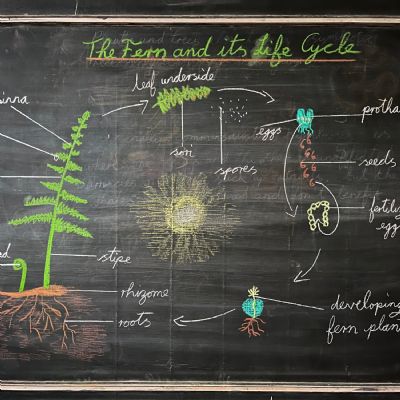 The Fern and its Life Cycle
leaf underside
inna
protha
eggs
sori
spores
seeds
fertilis
egg
stipe
rhizome
developing
fern plan
roots